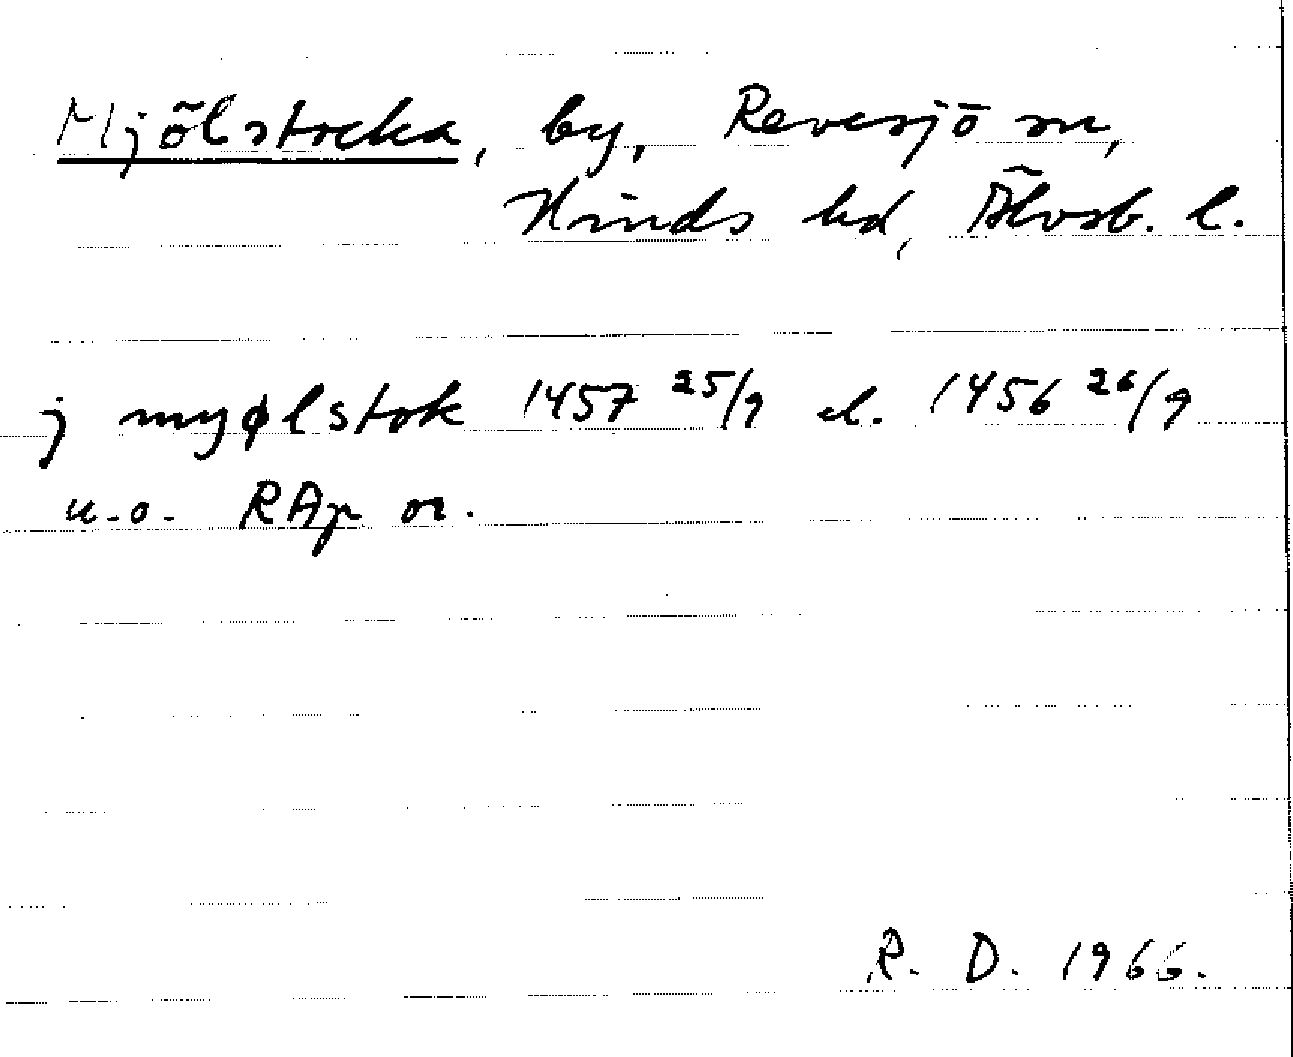 Mjölstocka, by, Revesjö sn,
Kinds hd, Älvsb. l.
j myølstok 1457 25/9 el. 1456 26/9
u.o. RAp or.
R. D. 1966.